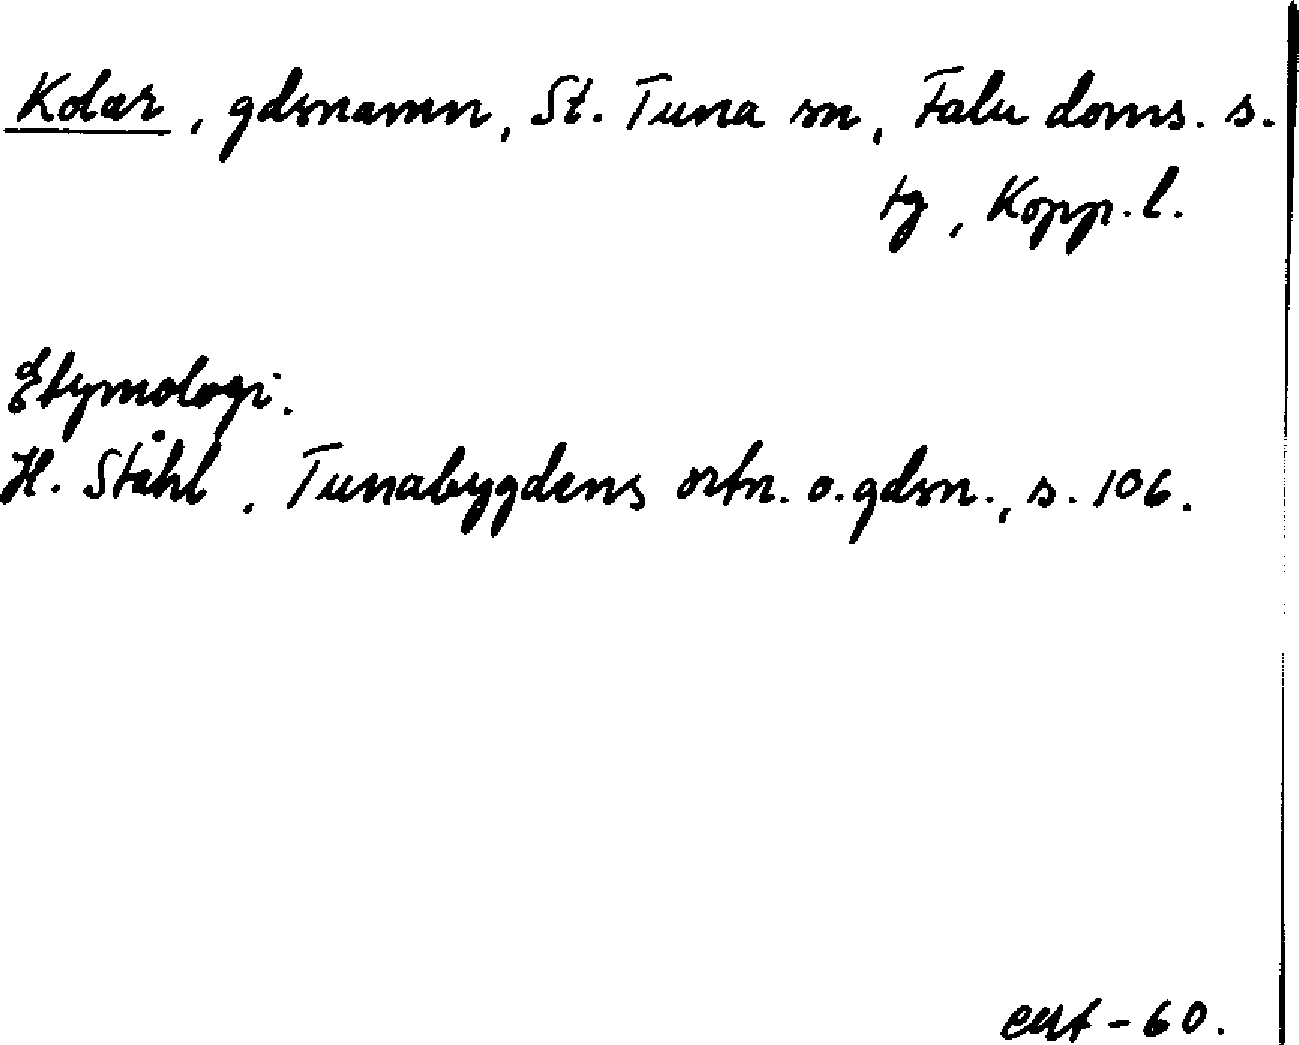 Kolar, gdsnamn, St. Tuna sn, Falu doms. s.
tg, Kopp. l.
Etymologi.
H. Ståhl, Tunabygdens ortn. o. gdsn., s. 106.
- 60.